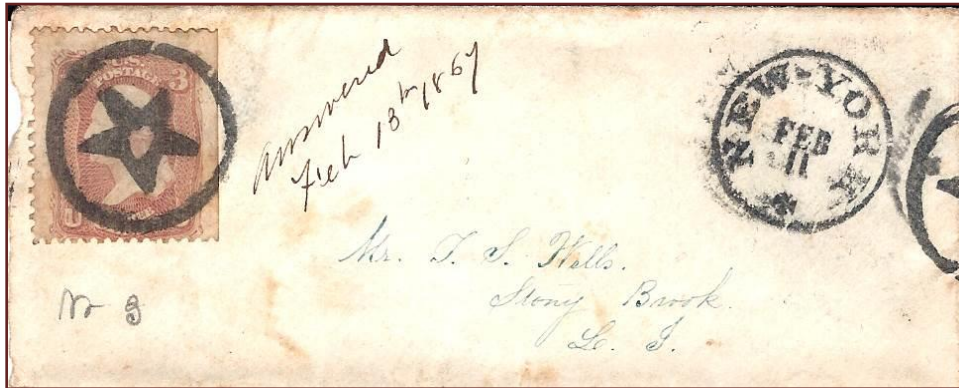 U.S.
POSTAGE
3
answered
Feb 13th 1867
NEW-YORK
FEB
11
Mr. T. S. Wells.
Stony Brook.
L. I.
No 3